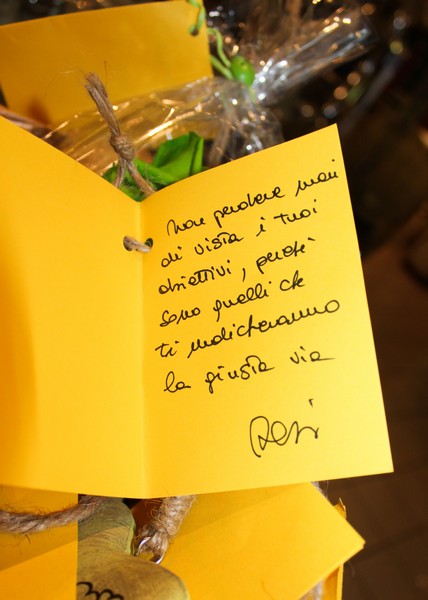 Non perdere mai
di vista i tuoi
obiettivi, perché
sono quelli che
ti indicheranno
la giusta via